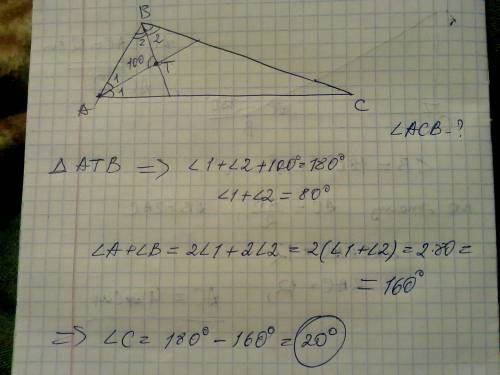 B
2 2
100 T
1
1
A
C
∠ACB - ?
Δ ATB ⟹ ∠1+∠2+100°=180°
∠1+∠2=80°
∠A+∠B = 2∠1+2∠2 = 2(∠1+∠2)=2·80=
=160°
⟹ ∠C= 180° - 160° = 20°